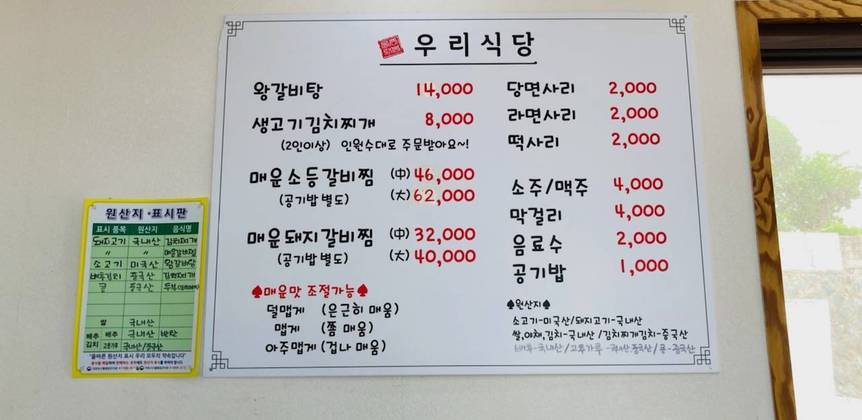 우리식당
왕갈비탕 14,000
생고기김치찌개 8,000
(2인이상) 인원수대로 주문받아요~!
매운소등갈비찜 (中) 46,000
(공기밥별도) (大) 62,000
매운돼지갈비찜 (中) 32,000
(공기밥별도) (大) 40,000
♠매운맛 조절가능♠
덜맵게 (은근히 매움)
맵게 (쫌 매움)
아주맵게 (겁나 매움)
당면사리 2,000
라면사리 2,000
떡사리 2,000
소주/맥주 4,000
막걸리 4,000
음료수 2,000
공기밥 1,000
♠원산지♠
소고기-미국산/돼지고기-국내산
쌀,야채,김치-국내산 /김치찌개김치-중국산
국내산 /고추가루 - 중국산/콩-중국산
원산지·표시판
표시 품목 원산지 음식명
돼지고기 국내산 김치찌개
〃 〃 매운갈비찜
소고기 미국산 왕갈비탕
배추김치 중국산 김치찌개
콩 중국산
쌀 국내산
배추 김치 배추 국내산 반찬
고춧가루 국내산/중국산
"올바른 원산지 표시 우리 모두의 약속입니다"